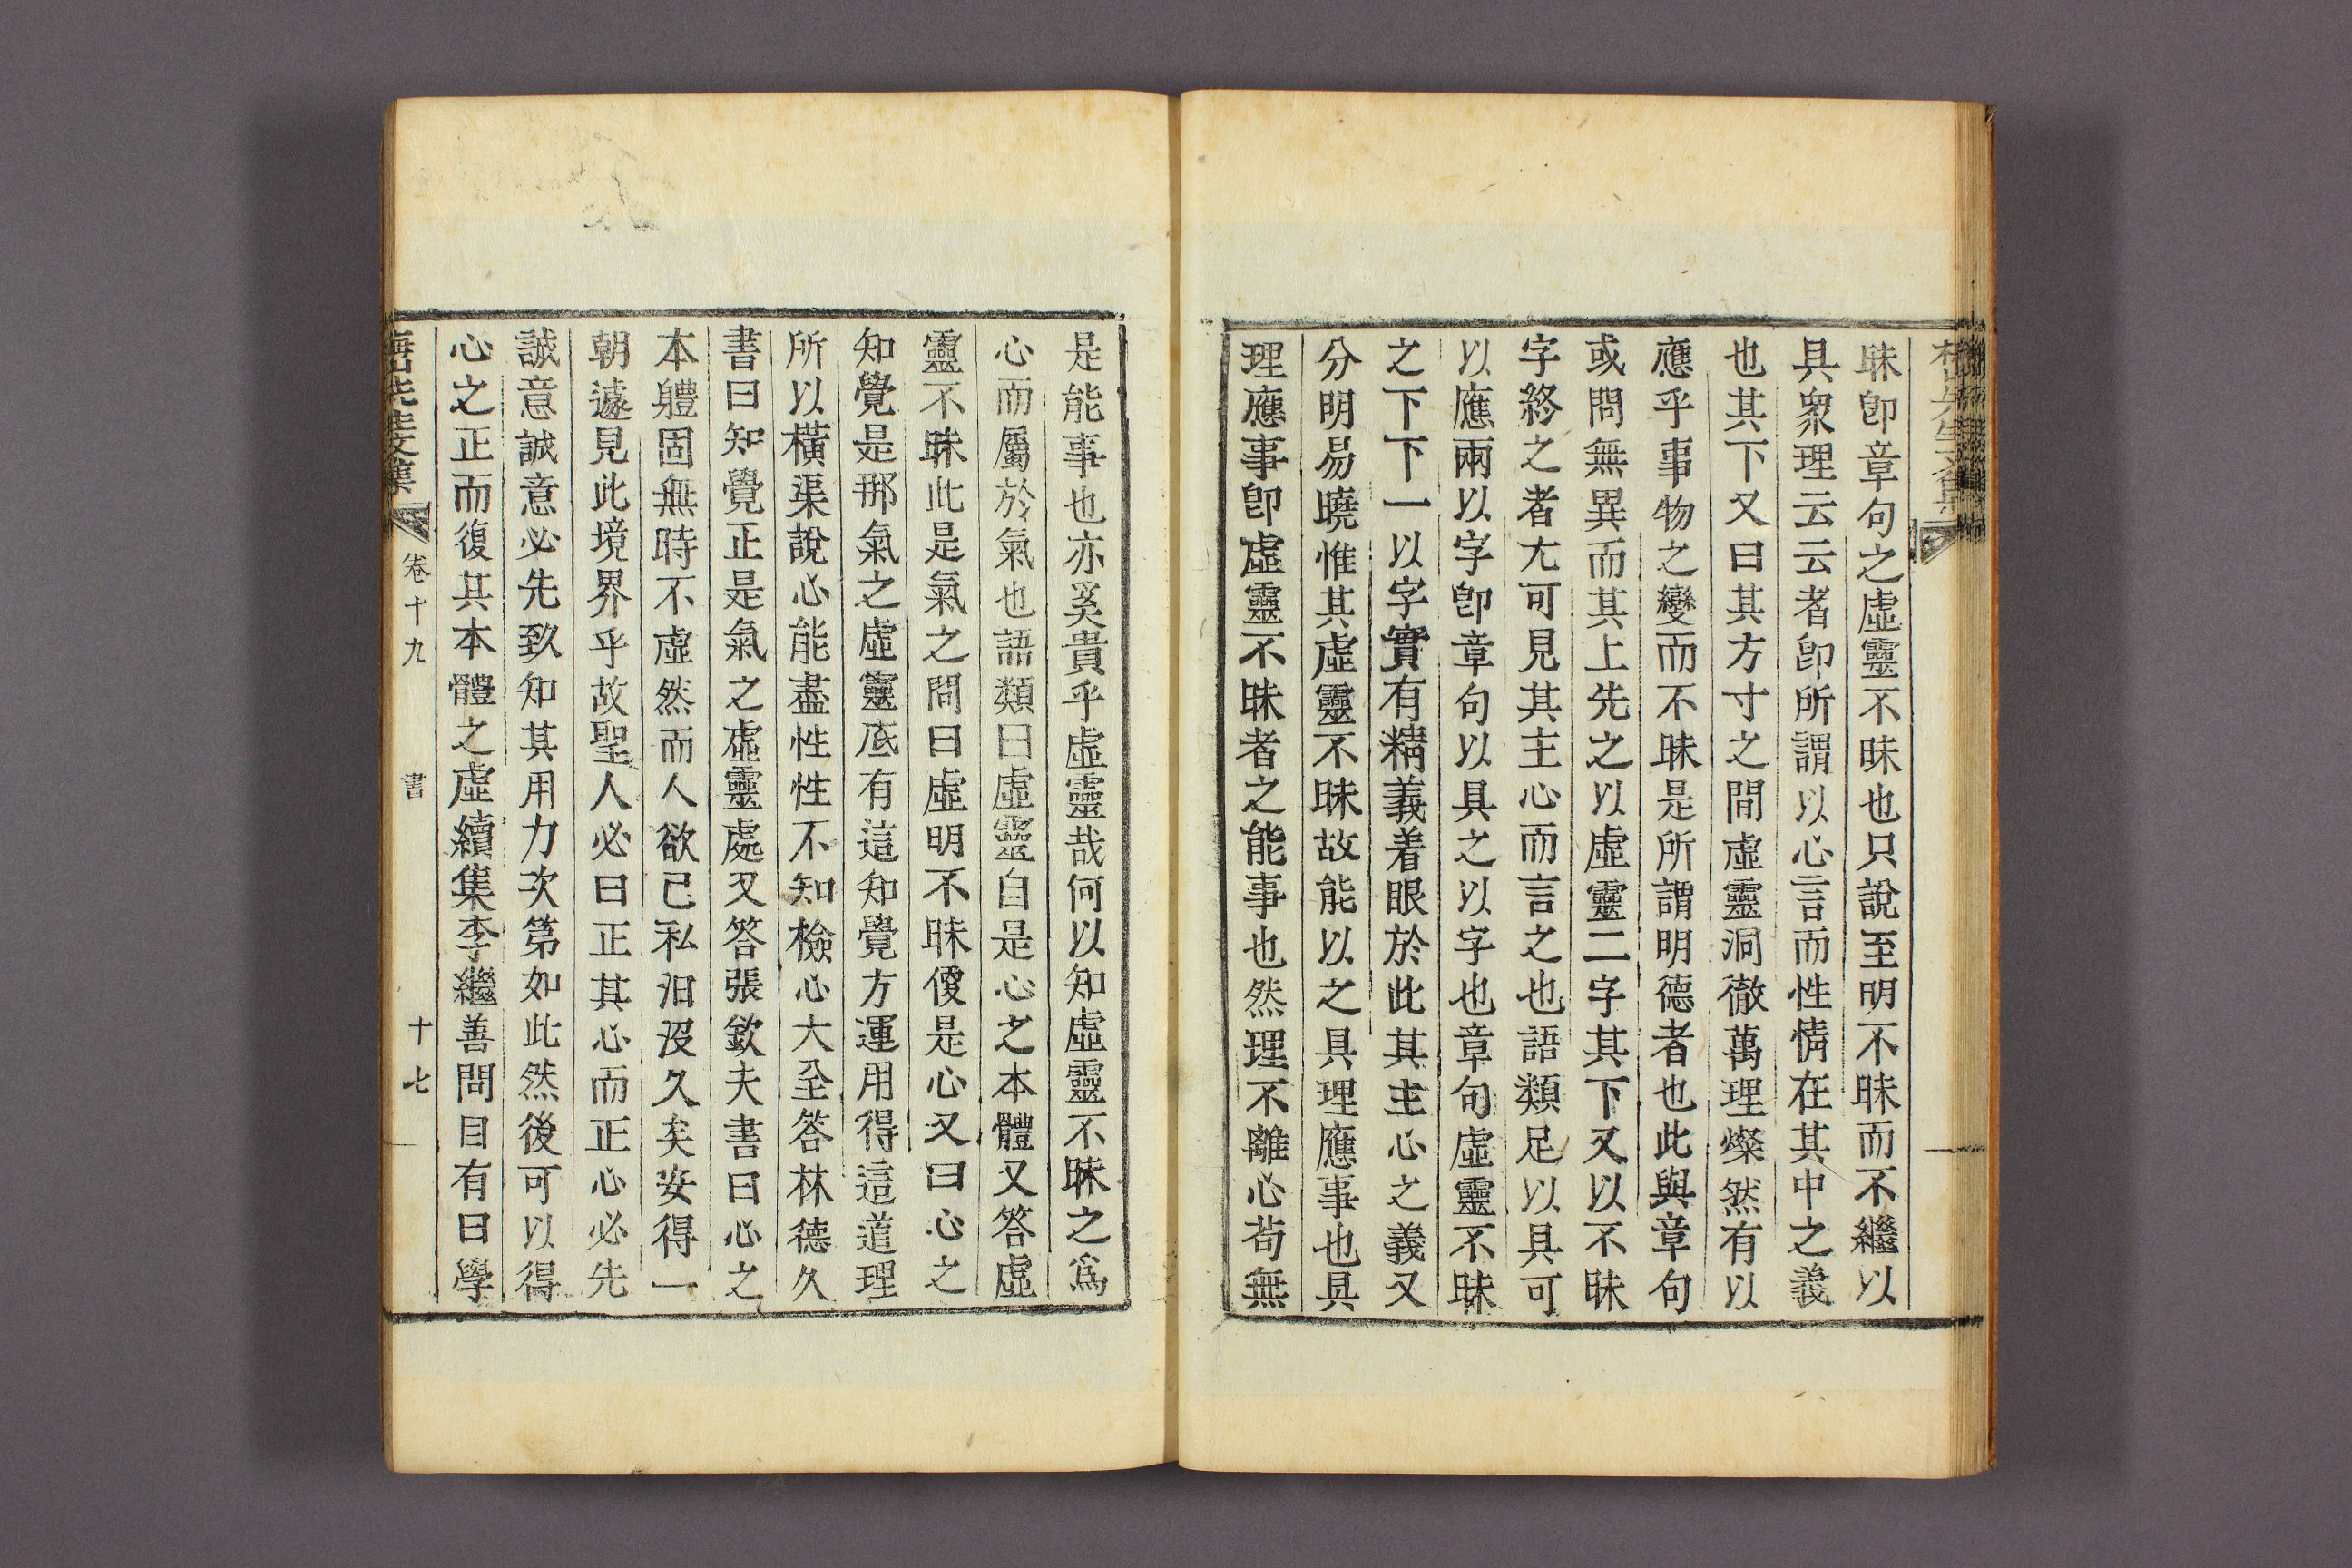 昧卽章句之虛靈不昧也只說至明不昧而不繼以
具衆理云云者卽所謂以心言而性情在其中之義
也其下又曰其方寸之間虛靈洞徹萬理燦然有以
應乎事物之變而不昧是所謂明德者也此與章句
或問無異而其上先之以虛靈二字其下又以不昧
字終之者尤可見其主心而言之也語類足以具可
以應兩以字卽章句以具之以字也章句虛靈不昧
之下下一以字實有精義着眼於此其主心之義又
分明易曉惟其虛靈不昧故能以之具理應事也具
理應事卽虛靈不昧者之能事也然理不離心苟無
是能事也亦奚貴乎虛靈哉何以知虛靈不昧之爲
心而屬於氣也語類曰虛靈自是心之本體又答虛
靈不昧此是氣之問曰虛明不昧便是心又曰心之
知覺是那氣之虛靈底有這知覺方運用得這道理
所以橫渠說心能盡性性不知檢心大全答林德久
書曰知覺正是氣之虛靈處又答張欽夫書曰心之
本軆固無時不虛然而人欲己私汩沒久矣安得一
朝遽見此境界乎故聖人必曰正其心而正心必先
誠意誠意必先致知其用力次第如此然後可以得
心之正而復其本體之虛續集李繼善問目有曰學
梅山先生文集 卷十九 書 十七